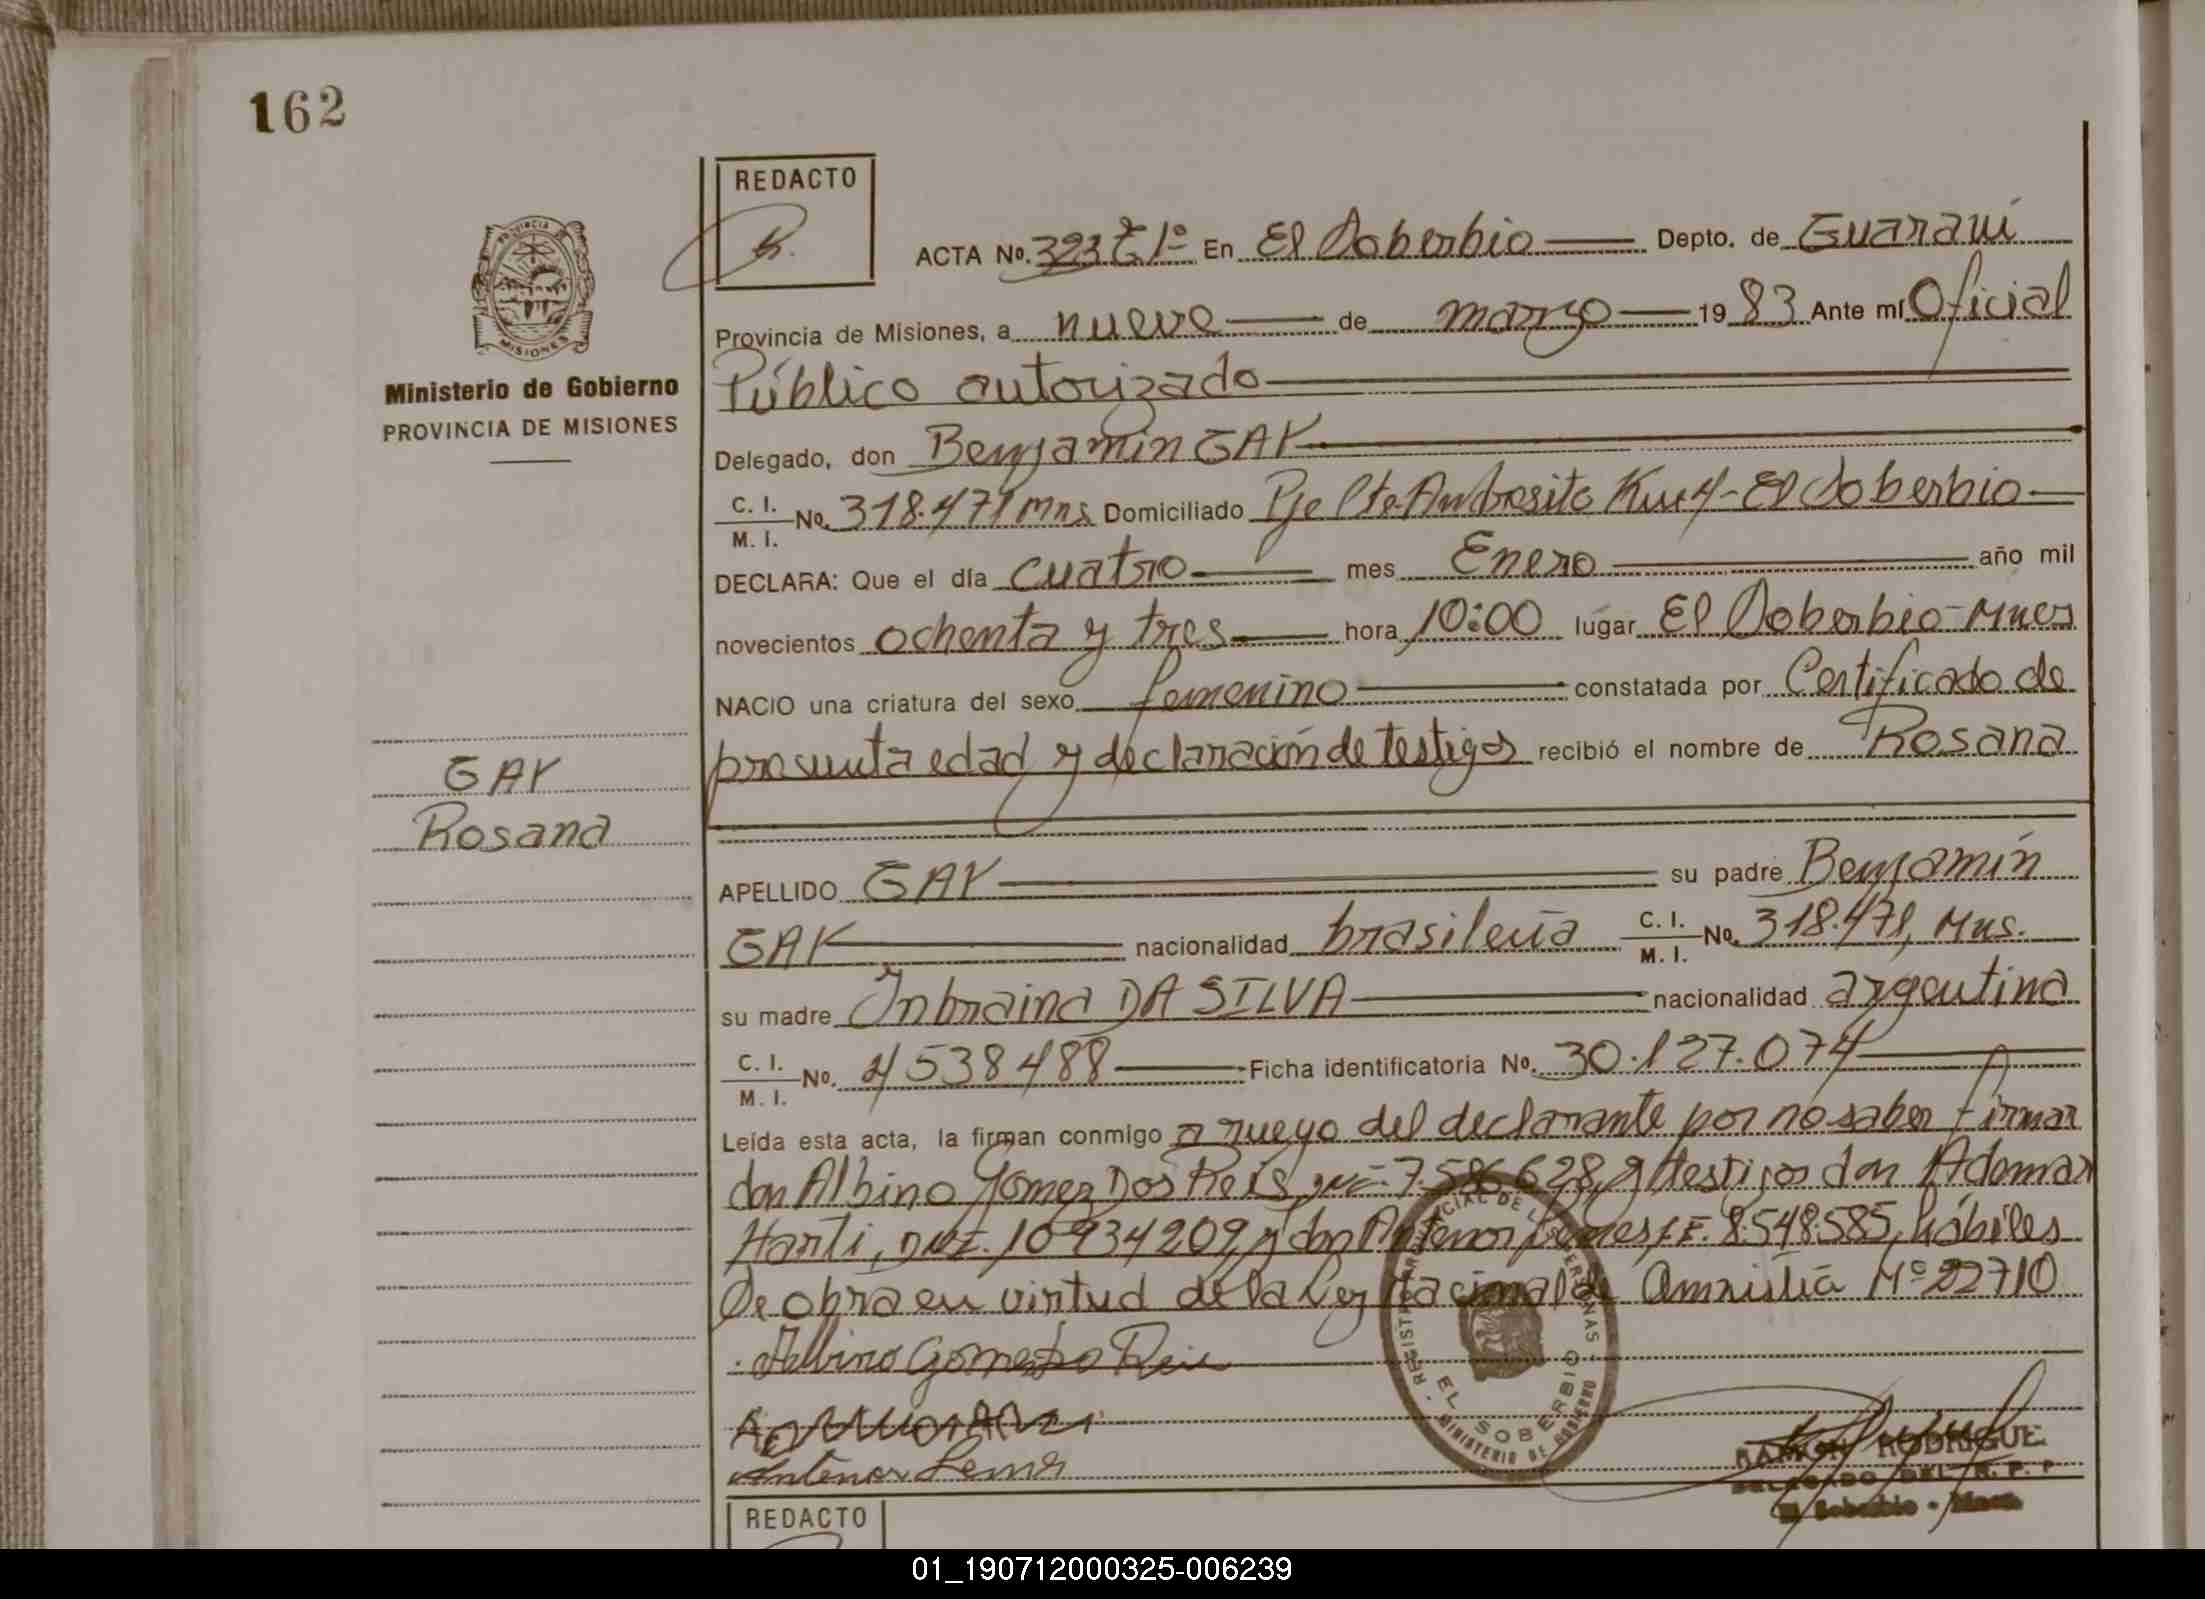 162
REDACTO
ACTA No. 323 Tº 1º En El Soberbio Depto. de Guaraní
Provincia de Misiones, a nueve de marzo 1983 Ante mí Oficial
Ministerio de Gobierno
PROVINCIA DE MISIONES
Público autorizado
Delegado, don Benjamín GAY
C. I.
M. I. No. 318.471 Mns Domiciliado Pje Pto. Ambrosito Km 4 - El Soberbio
DECLARA: Que el día cuatro mes Enero año mil
novecientos ochenta y tres hora 10:00 lugar El Soberbio - Mnes
NACIO una criatura del sexo femenino constatada por Certificado de
presunta edad y declaración de testigos recibió el nombre de Rosana
GAY
Rosana
APELLIDO GAY su padre Benjamín
GAY nacionalidad brasileña C. I.
M. I. No. 318.471, Mns.
su madre DA SILVA nacionalidad argentina
C. I.
M. I. No. 4538488 Ficha identificatoria No. 30.127.074
Leída esta acta, la firman conmigo a ruego del declarante por no saber firmar
don Albino Gomez Dos Reis, 7.586.628, y testigos don Adomar
Harti, DNI. 10934209, y don Antenor Lemes L.E. 8.548.585, hábiles
De obra en virtud de la Ley Nacional de Amnistía Nº 22710
Albino Gomes Do Reis
Antenor Lemes
REGISTRO PROVINCIAL DE LAS PERSONAS
EL SOBERBIO
MINISTERIO DE GOBIERNO
RAMON RODRIGUE
DELEGADO DEL R. P. P.
El Soberbio - Mnes
REDACTO
01_190712000325-006239